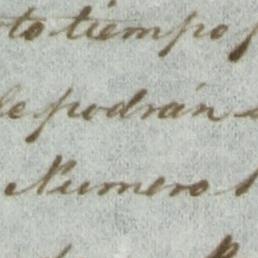 to tiempo p
le podrán
Numero